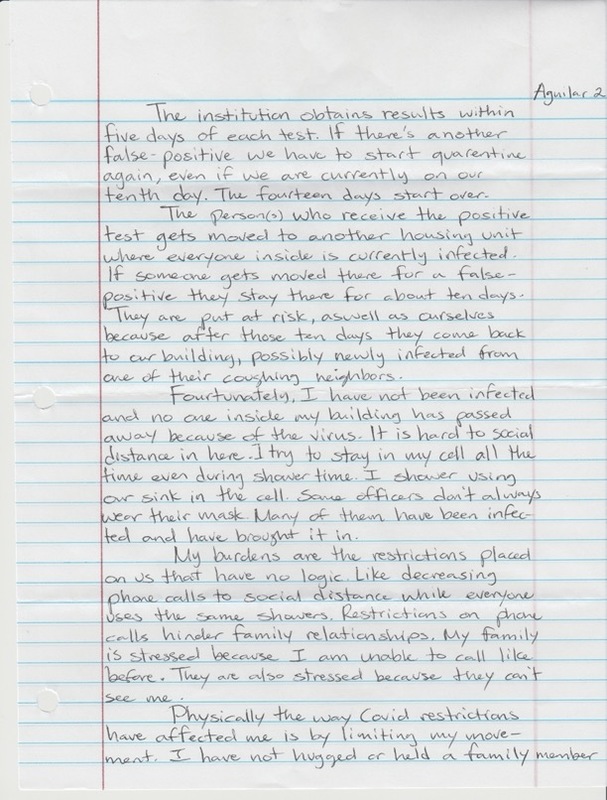 Aguilar 2
The institution obtains results within
five days of each test. If there's another
false-positive we have to start quarentine
again, even if we are currently on our
tenth day. The fourteen days start over.
The person(s) who receive the positive
test gets moved to another housing unit
where everyone inside is currently infected.
If someone gets moved there for a false-
positive they stay there for about ten days.
They are put at risk, aswell as ourselves
because after those ten days they come back
to our building, possibly newly infected from
one of their coughing neighbors.
Fourtunately, I have not been infected
and no one inside my building has passed
away because of the virus. It is hard to social
distance in here. I try to stay in my cell all the
time even during shower time. I shower using
our sink in the cell. Some officers don't always
wear their mask. Many of them have been infec-
ted and have brought it in.
My burdens are the restrictions placed
on us that have no logic. Like decreasing
phone calls to social distance while everyone
uses the same showers. Restrictions on phone
calls hinder family relationships. My family
is stressed because I am unable to call like
before. They are also stressed because they can't
see me.
Physically the way Covid restrictions
have affected me is by limiting my move-
ment. I have not hugged or held a family member